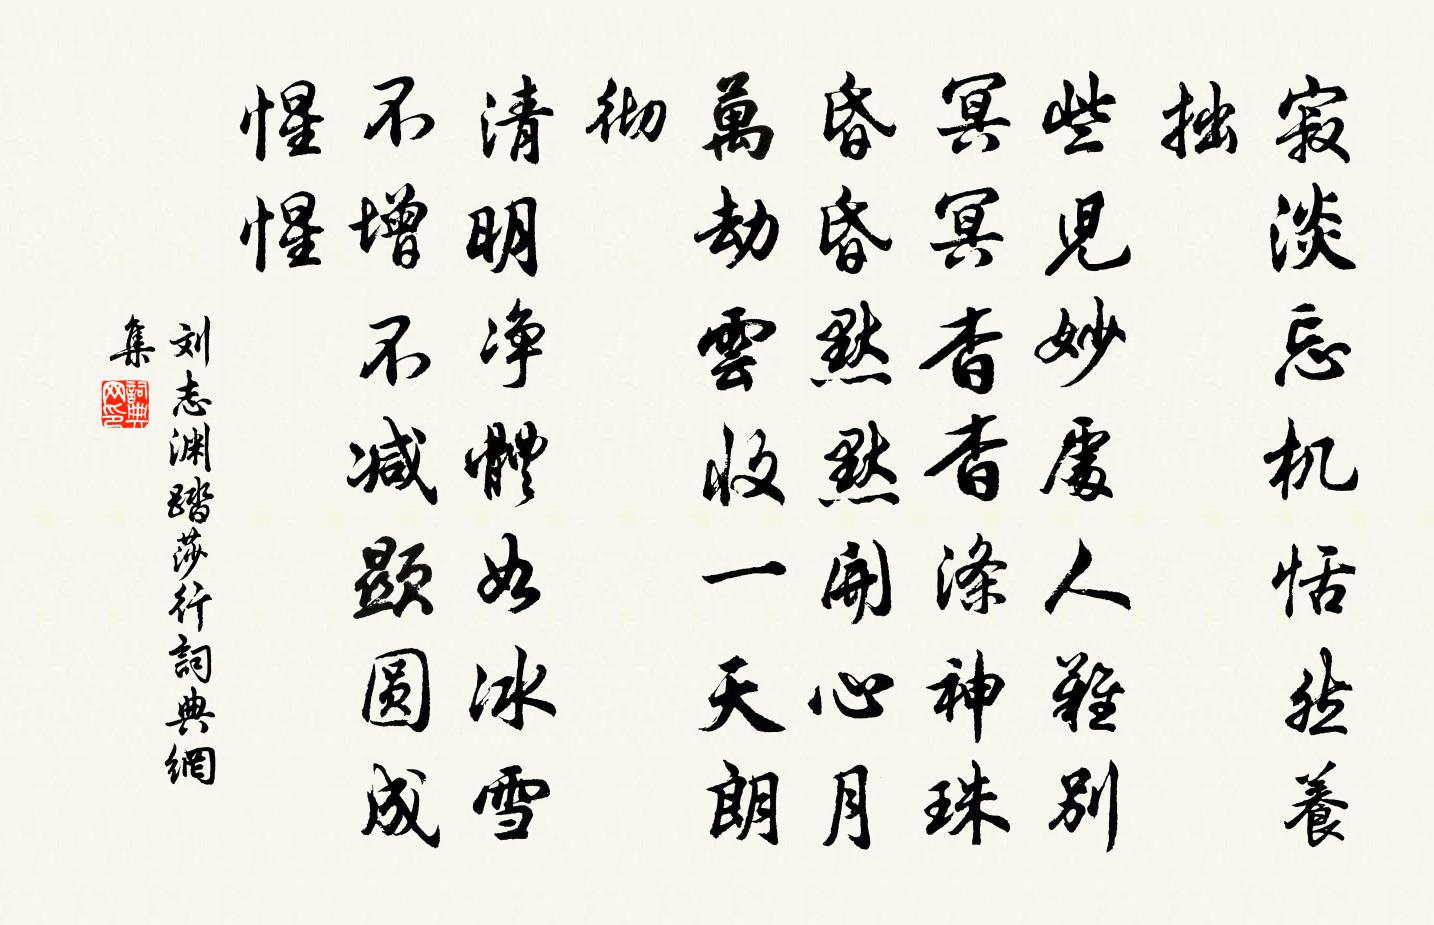 寂淡忘机恬然養
拙
些児妙處人難別
冥冥杳杳滌神珠
昏昏默默開心月
萬劫雲收一天朗
彻
清明净體如冰雪
不增不减顕圆成
惺惺
刘志渊踏莎行詞典網
集
詞典
网印